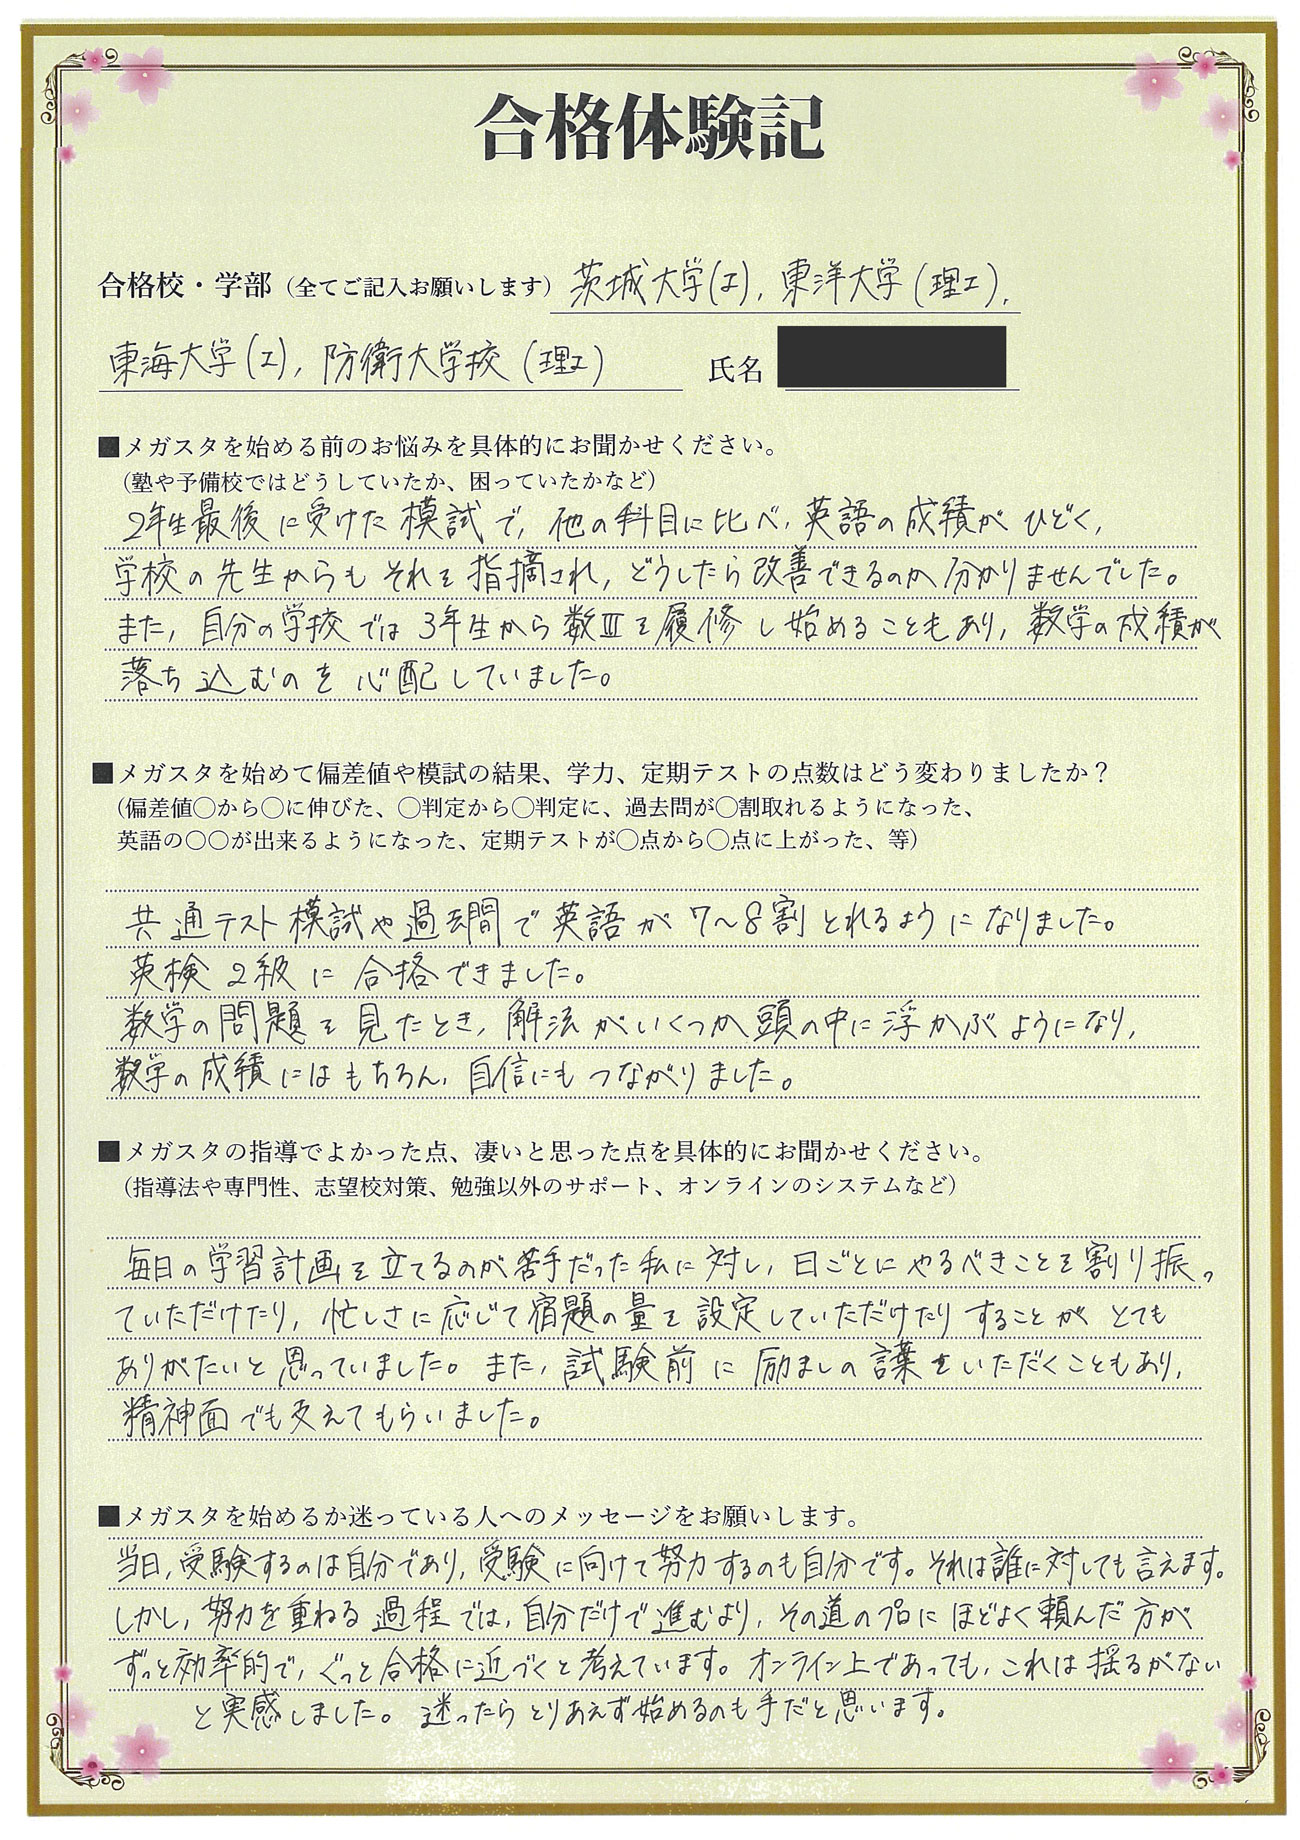 合格体験記
合格校・学部（全てご記入お願いします）茨城大学(工), 東洋大学(理工),
東海大学(工), 防衛大学校(理工) 氏名
■メガスタを始める前のお悩みを具体的にお聞かせください。
（塾や予備校ではどうしていたか、困っていたかなど）
2年生最後に受けた模試で, 他の科目に比べ, 英語の成績がひどく,
学校の先生からもそれを指摘され, どうしたら改善できるのか分かりませんでした。
また, 自分の学校では3年生から数Ⅲを履修し始めることもあり, 数学の成績が
落ち込むのを心配していました。
■メガスタを始めて偏差値や模試の結果、学力、定期テストの点数はどう変わりましたか？
（偏差値〇から〇に伸びた、〇判定から〇判定に、過去問が〇割取れるようになった、
英語の〇〇が出来るようになった、定期テストが〇点から〇点に上がった、等）
共通テスト模試や過去問で英語が7〜8割とれるようになりました。
英検2級に合格できました。
数学の問題を見たとき, 解法がいくつか頭の中に浮かぶようになり,
数学の成績にはもちろん, 自信にもつながりました。
■メガスタの指導でよかった点、凄いと思った点を具体的にお聞かせください。
（指導法や専門性、志望校対策、勉強以外のサポート、オンラインのシステムなど）
毎日の学習計画を立てるのが苦手だった私に対し, 日ごとにやるべきことを割り振っ
ていただけたり, 忙しさに応じて宿題の量を設定していただけたりすることがとても
ありがたいと思っていました。また, 試験前に励ましの言葉をいただくこともあり,
精神面でも支えてもらいました。
■メガスタを始めるか迷っている人へのメッセージをお願いします。
当日, 受験するのは自分であり, 受験に向けて努力するのも自分です。それは誰に対しても言えます。
しかし, 努力を重ねる過程では, 自分だけで進むより, その道のプロにほどよく頼んだ方が
ずっと効率的で, ぐっと合格に近づくと考えています。オンライン上であっても, これは揺るがない
と実感しました。迷ったらとりあえず始めるのも手だと思います。